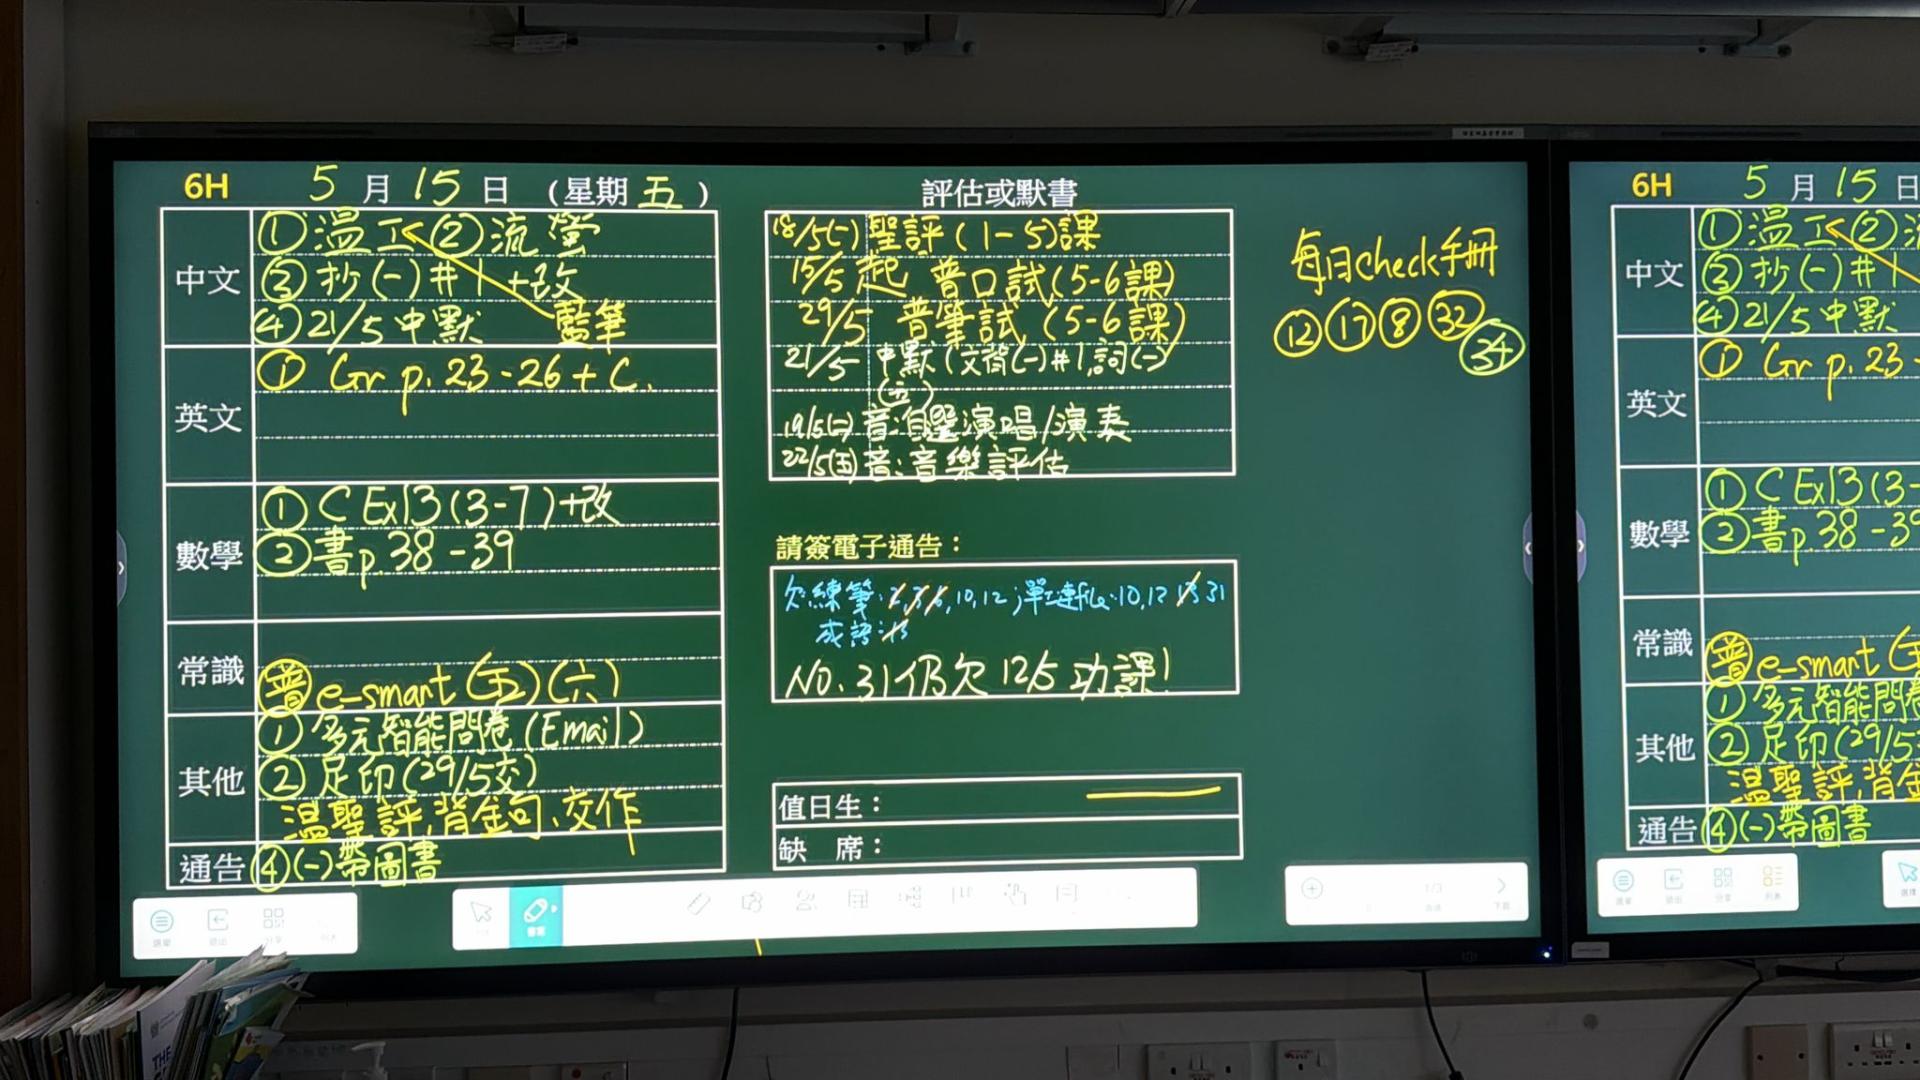 6H 5月15日 (星期五)
中文
①溫工②流螢
③抄(一)#1+改
④21/5中默 藍筆
英文
① Gr p. 23-26 + C.
數學
① C Ex13 (3-7)+改
②書p.38-39
常識
普 e-smart (五)(六)
其他
①多元智能問卷(Email)
②足印(29/5交)
溫聖評,背金句、交作
通告
④(一)帶圖書
評估或默書
18/5(一) 聖評(1-5)課
15/5起 普口試(5-6課)
29/5 普筆試(5-6課)
21/5 中默(文背(一)#1,詞(一)
(六)
19/5(二) 音:自選演唱/演奏
22/5(五) 音:音樂評估
請簽電子通告:
欠練筆:10,12;單工連file:10,12 31
成語:
NO. 31仍欠12/5功課!
值日生:
缺 席:
每日check手冊
⑫⑰⑧㉜
㉞
6H 5月15日
中文
①溫工②流
③抄(一)#1
④21/5中默
英文
① Gr p. 23-
數學
① C Ex13 (3-
②書p.38-39
常識
普 e-smart (五
其他
①多元智能問卷
②足印(29/5
溫聖評,背金
通告
④(一)帶圖書
THE